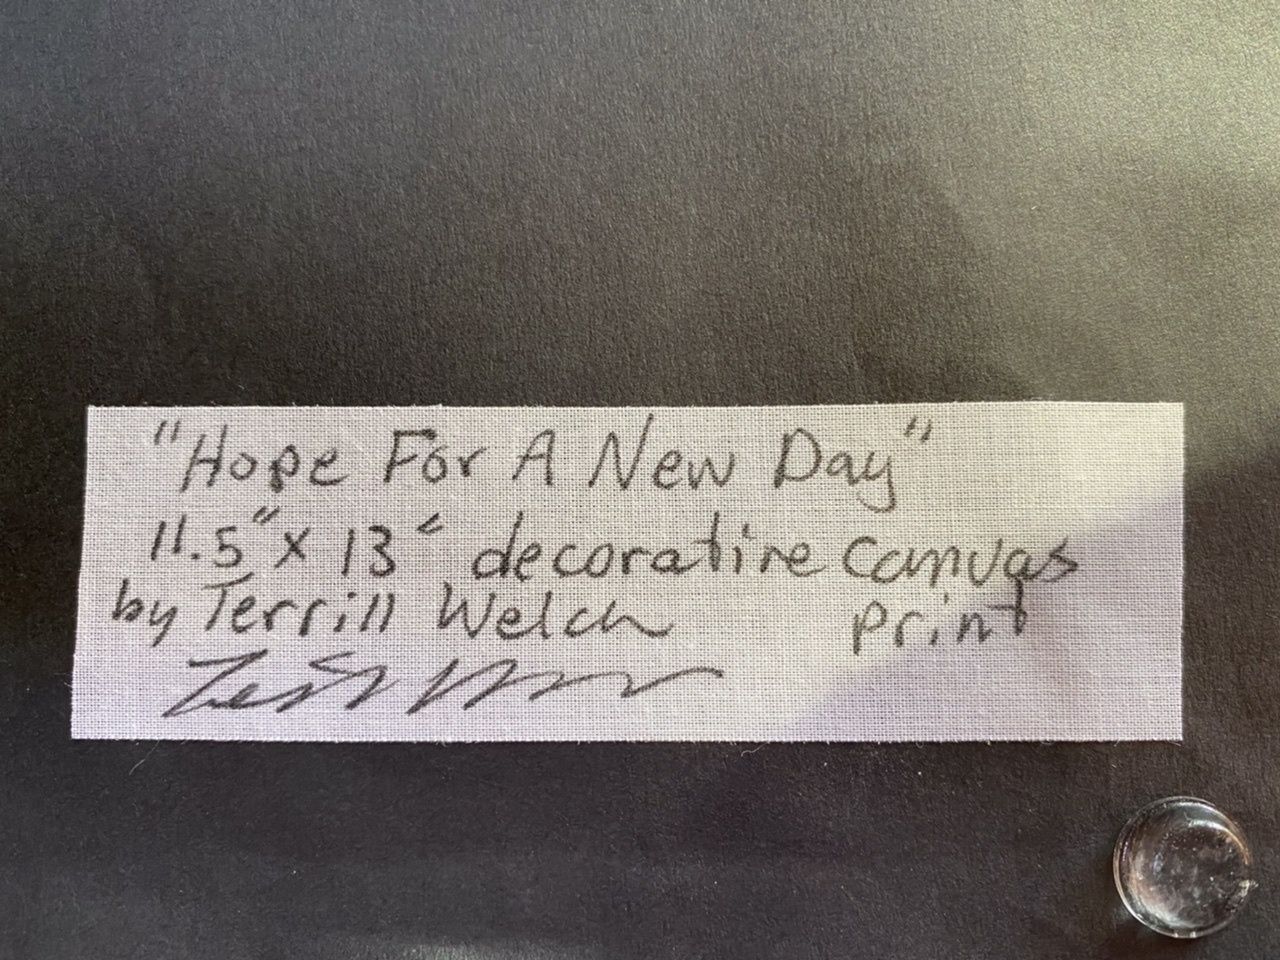 "Hope For A New Day"
11.5" x 13" decorative canvas
by Terrill Welch print